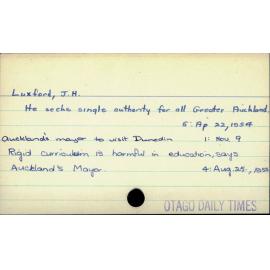 Luxford, J.H.
He seeks single authority for all Greater Auckland.
5: Ap 22, 1954
Auckland's mayor to visit Dunedin 1: Nov. 9
Rigid curriculum is harmful in education, says
Auckland's Mayor. 4: Aug. 25.,
OTAGO DAILY TIMES